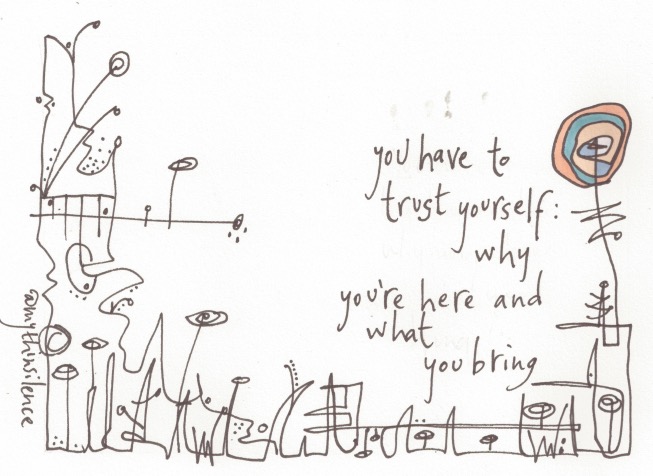 you have to
trust yourself:
why
you're here and
what
you bring
@mythinsilence